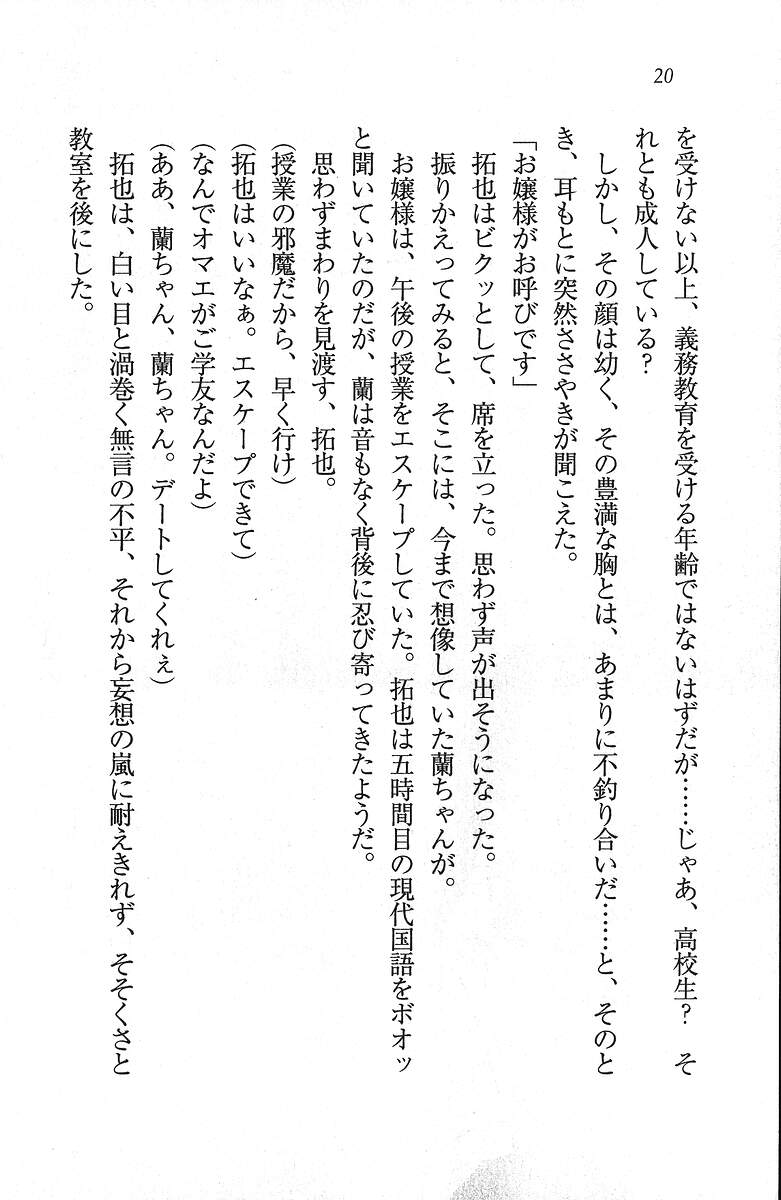 20
を受けない以上、義務教育を受ける年齢ではないはずだが……じゃあ、高校生?　そ
れとも成人している?
　しかし、その顔は幼く、その豊満な胸とは、あまりに不釣り合いだ……と、そのと
き、耳もとに突然ささやきが聞こえた。
「お嬢様がお呼びです」
　拓也はビクッとして、席を立った。思わず声が出そうになった。
　振りかえってみると、そこには、今まで想像していた蘭ちゃんが。
　お嬢様は、午後の授業をエスケープしていた。拓也は五時間目の現代国語をボオッ
と聞いていたのだが、蘭は音もなく背後に忍び寄ってきたようだ。
　思わずまわりを見渡す、拓也。
(授業の邪魔だから、早く行け)
(拓也はいいなぁ。エスケープできて)
(なんでオマエがご学友なんだよ)
(ああ、蘭ちゃん、蘭ちゃん。デートしてくれぇ)
　拓也は、白い目と渦巻く無言の不平、それから妄想の嵐に耐えきれず、そそくさと
教室を後にした。